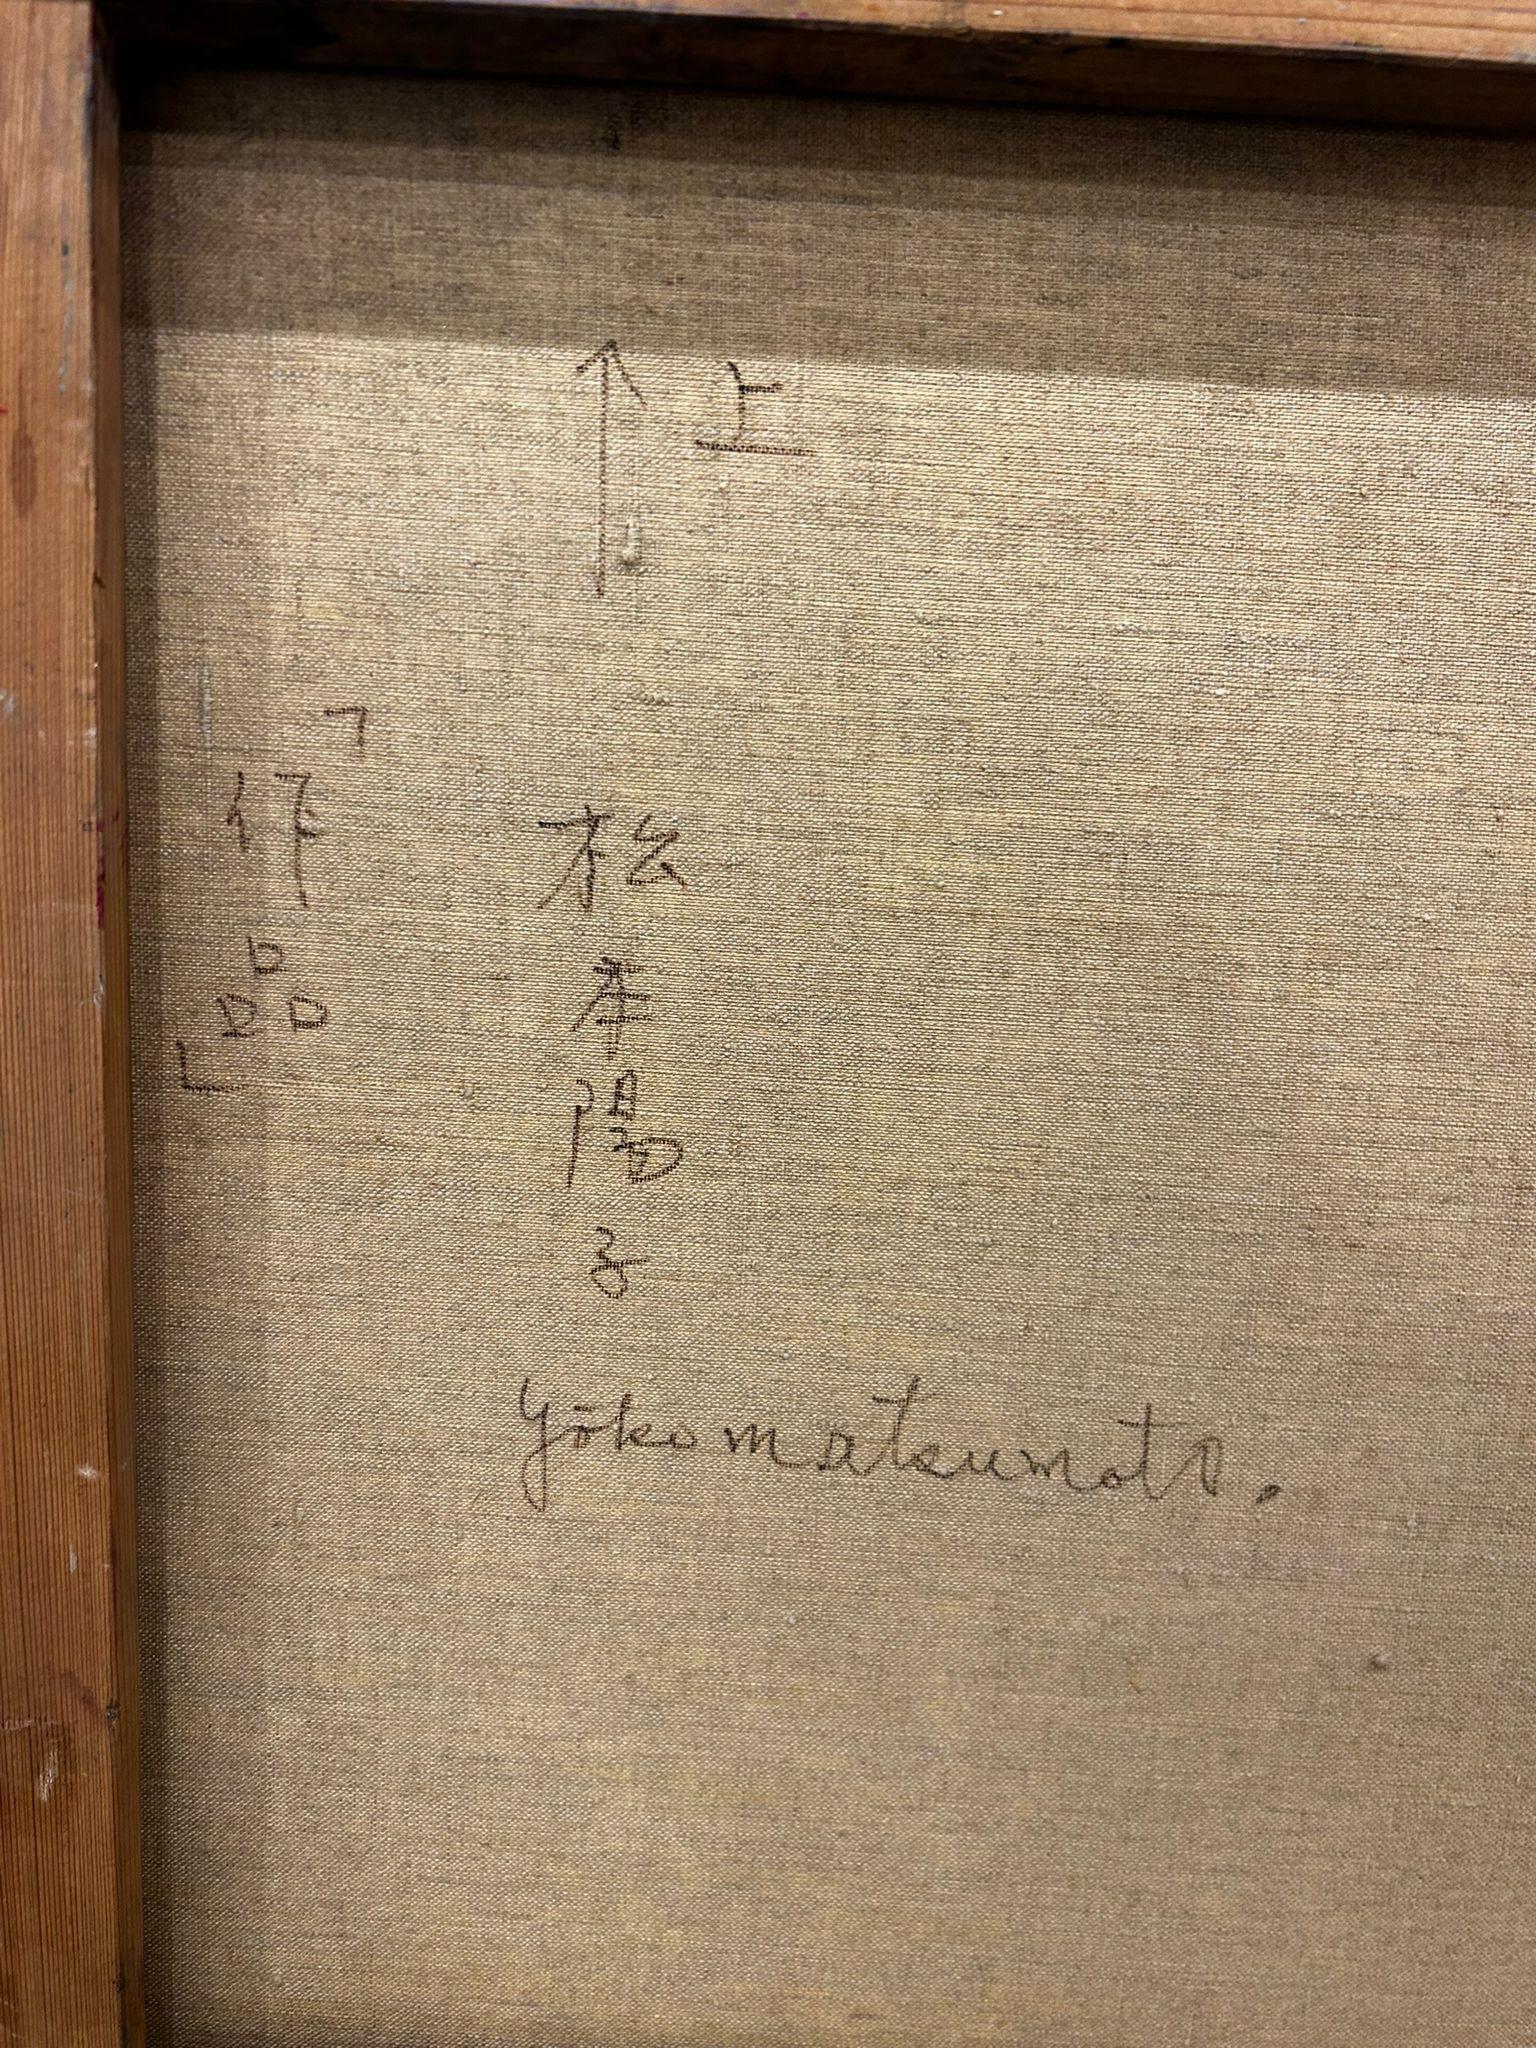 ↑ 上
松本陽子
「作品」
Yōko matsumoto.